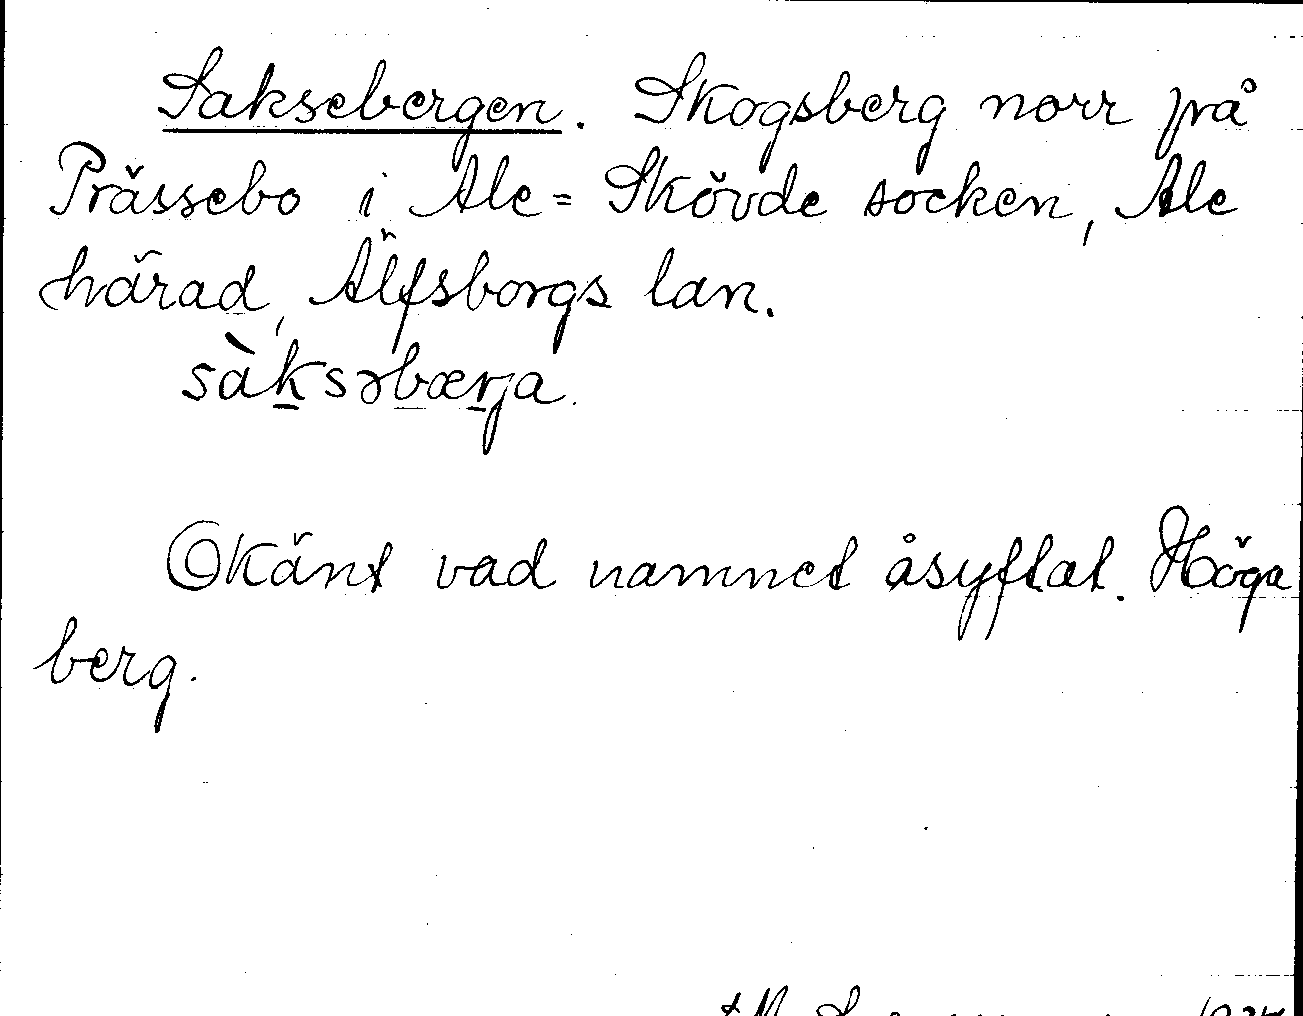 Saksebergen. Skogsberg norr frå
Prässebo i Ale=Skövde socken, Ale
härad, Älfsborgs lan.
sàksəbærja.
Okänt vad namnet åsyftat. Höga
berg.